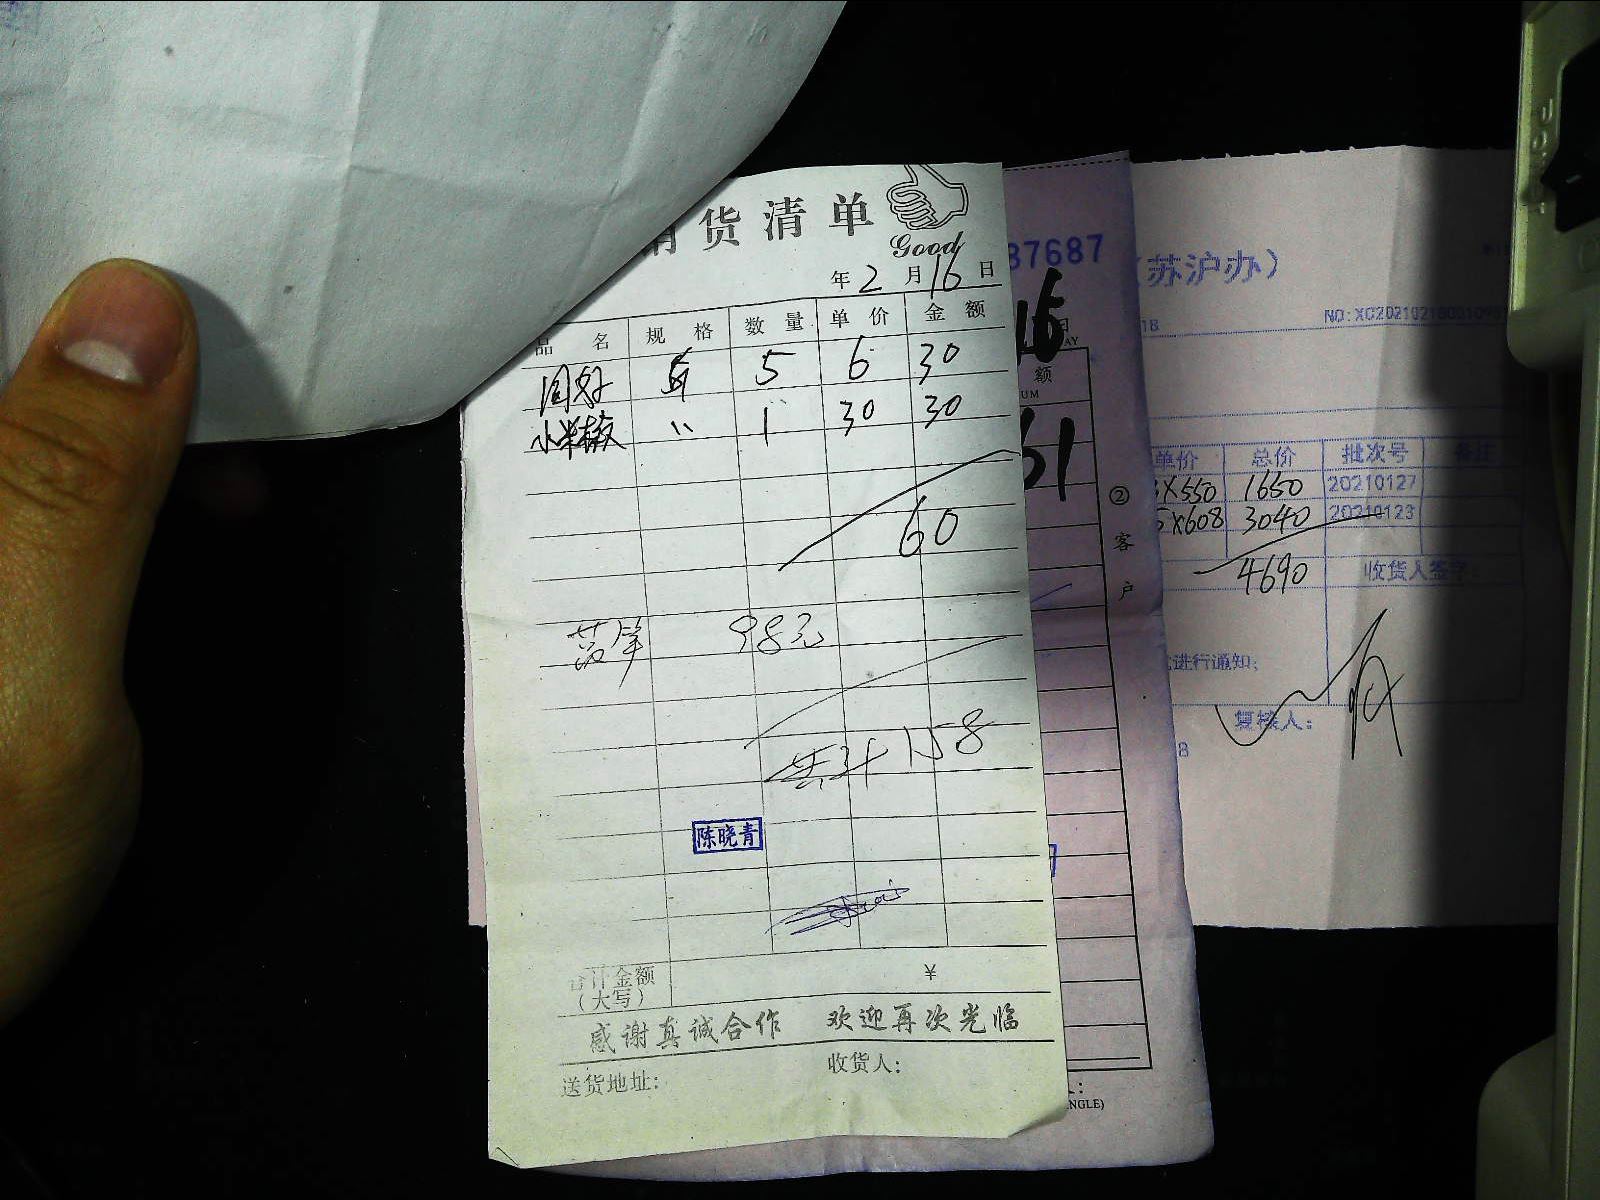 货清单
Good
年2月16日
品名 规格 数量 单价 金额
5 6 30
小米椒 〃 1 30 30
60
98元
共计158
陈晓青
合计金额
(大写)
¥
感谢真诚合作 欢迎再次光临
送货地址: 收货人:
87687
16
日
额
UM
61
②客户
NGLE)
(苏沪办)
18
单价 总价 批次号 备注
X550 1650 20210127
X608 3040 20210123
4690 收货人签字:
进行通知;
复核人:
8